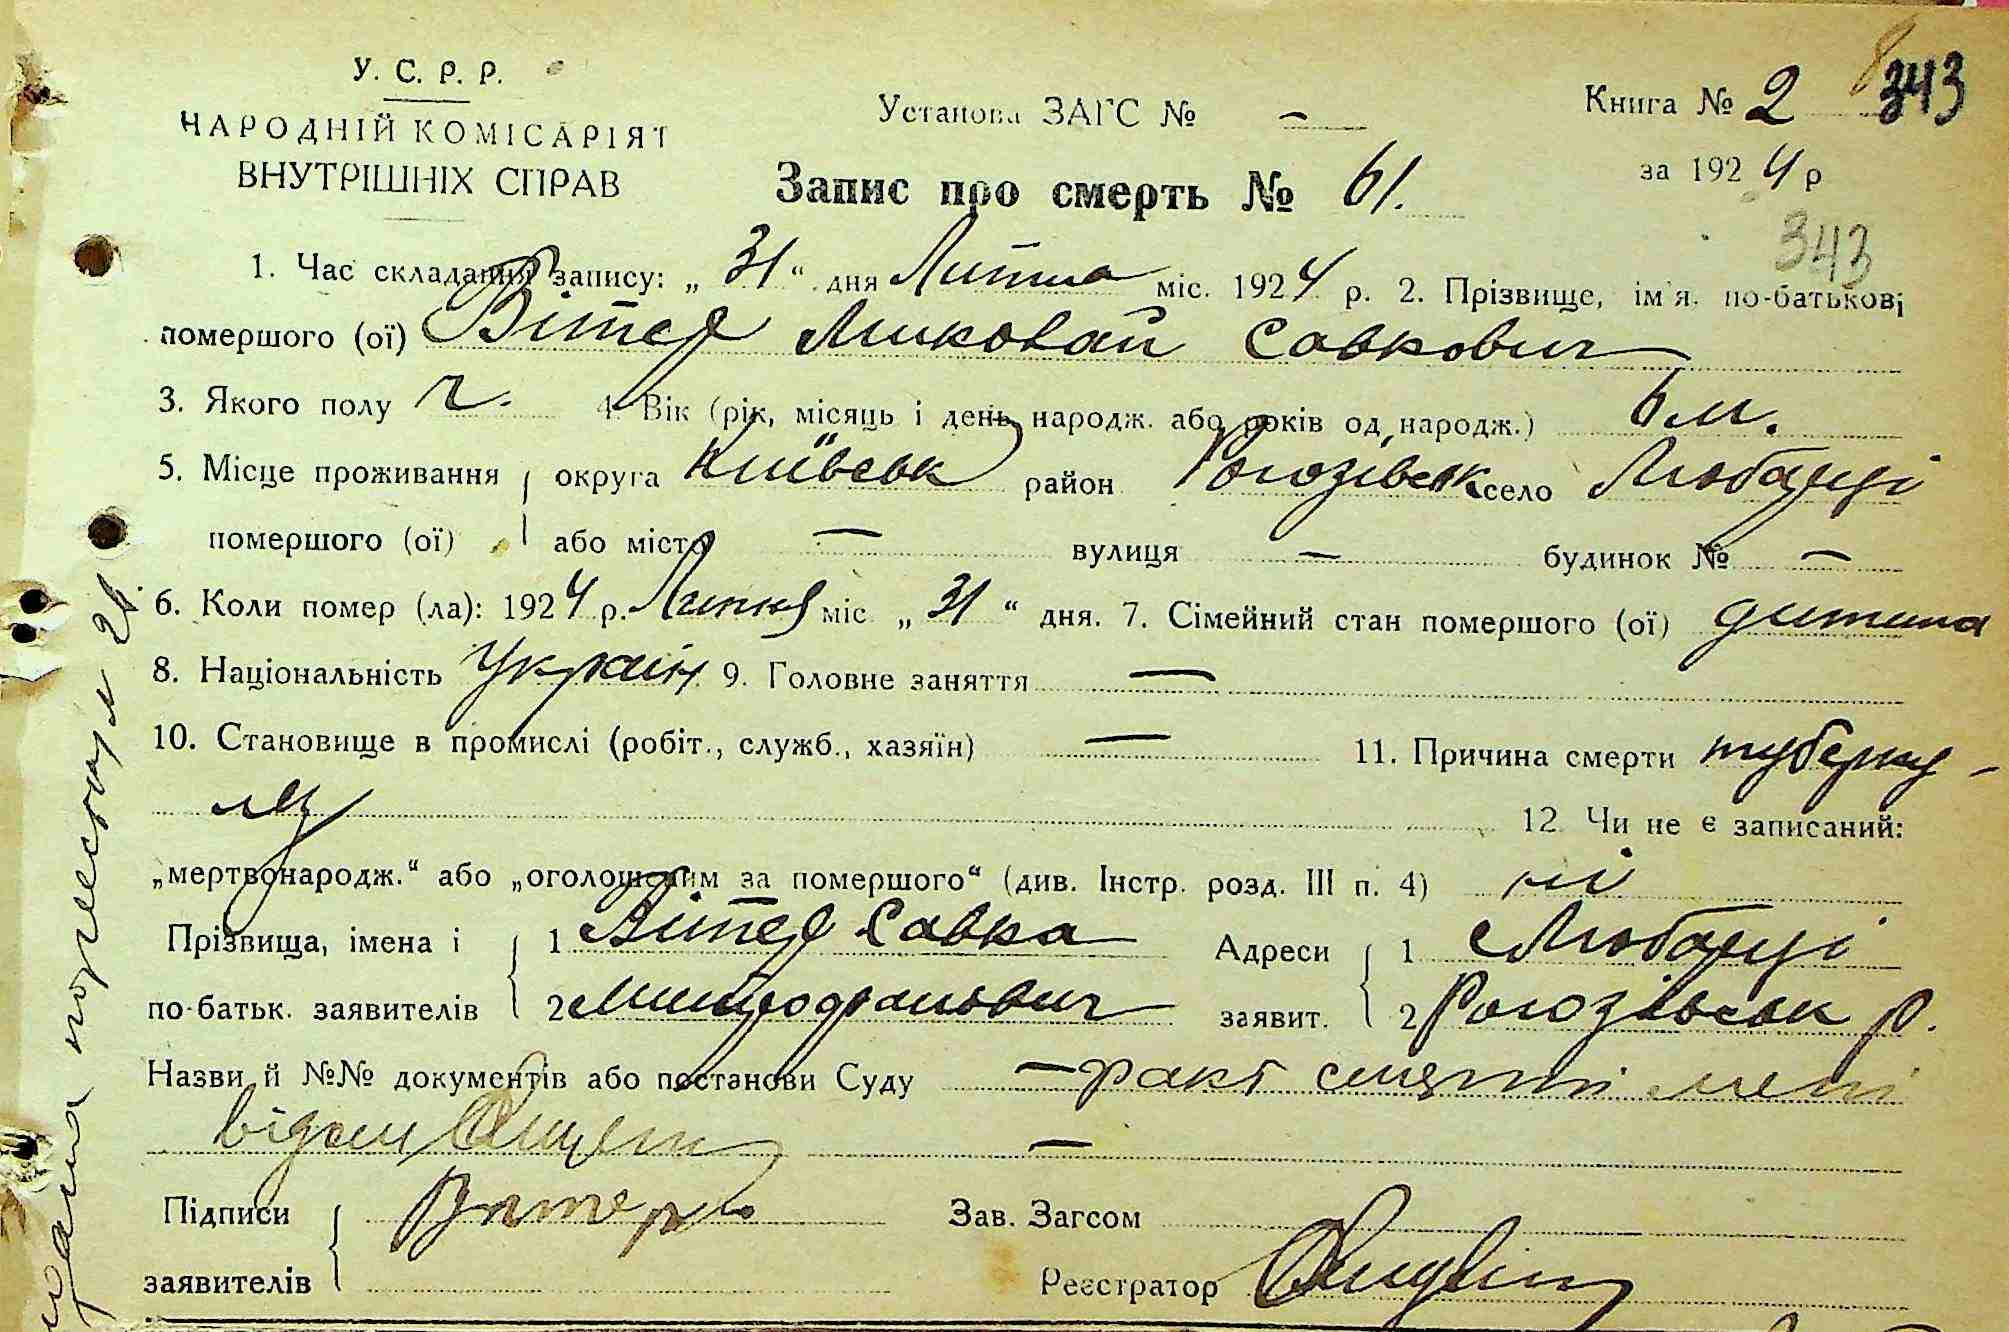 У. С. Р. Р.
НАРОДНІЙ КОМІСАРІЯТ
ВНУТРІШНІХ СПРАВ
Установа ЗАГС № —
Книга № 2 343
за 1924 р
Запис про смерть № 61.
343
1. Час складання запису: „31“ дня Липня міс. 1924 р. 2. Прізвище, ім'я. по-батькові
помершого (ої) Вітер Миколай Савкович
3. Якого полу ч. 4. Вік (рік, місяць і день народж. або років од народж.) 6 м.
5. Місце проживання округа Київськ район Рогозівськ село Любарці
помершого (ої) або місто — вулиця — будинок № —
6. Коли помер (ла): 1924 р. Липня міс. „31“ дня. 7. Сімейний стан помершого (ої) дитина
8. Національність Україн 9. Головне заняття —
10. Становище в промислі (робіт., служб., хазяїн) — 11. Причина смерти туберку-
лез
12 Чи не є записаний:
„мертвонародж.“ або „оголошеним за помершого“ (див. Інстр. розд. III п. 4) ні
Прізвища, імена і 1 Вітер Савка Адреси 1 Любарці
по-батьк. заявителів 2 Митрофанович заявит. 2 Рогозівськ р.
Назви й №№ документів або постанови Суду — факт смерти мені
відом —
Підписи Витер Зав. Загсом
заявителів Реєстратор